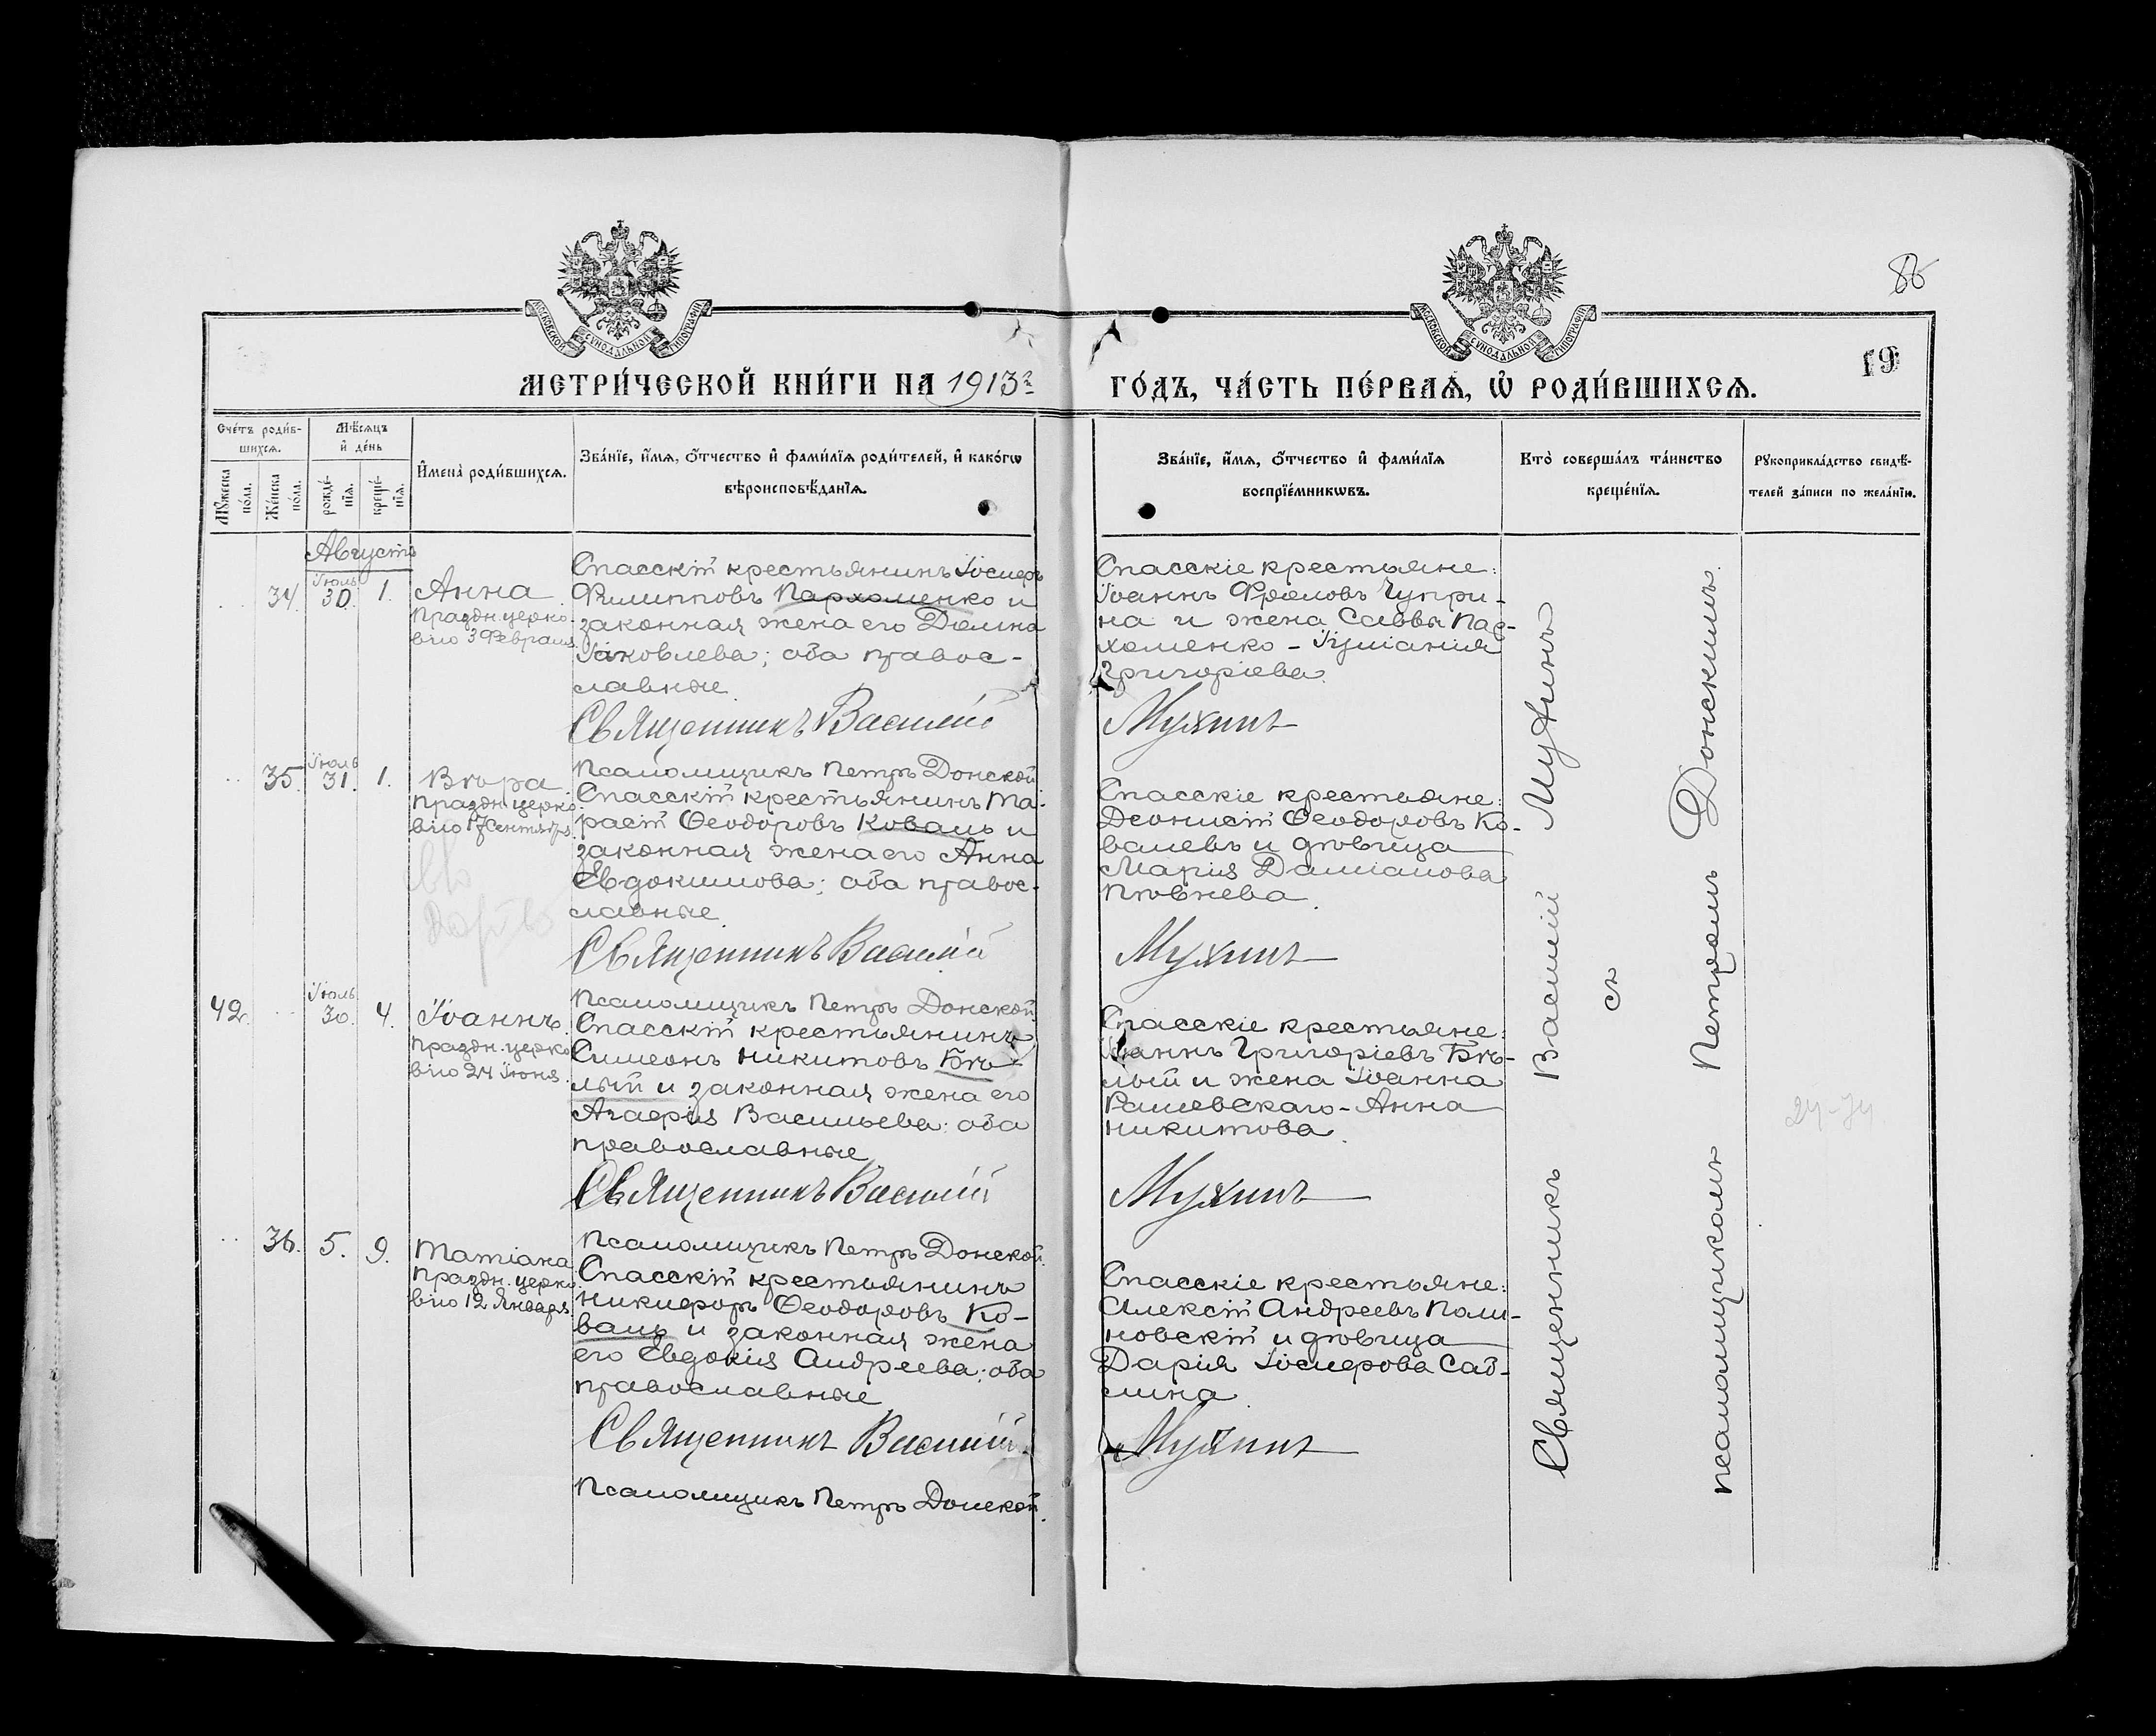 86
19
МОСКОВСКОЙ СѴНОДАЛЬНОЙ ТИПОГРАФІИ
МОСКОВСКОЙ СѴНОДАЛЬНОЙ ТИПОГРАФІИ
МЕТРИ́ЧЕСКОЙ КНИ́ГИ НА 1913 г.
ГО́ДЪ, ЧА́СТЬ ПЕ́РВАѦ, Ѡ҆ РОДИ́ВШИХСѦ.
Сче́тъ роди́в-
шихсѧ.
Мѣ́сѧцъ
и҆ де́нь
Мꙋ́жеска
по́ла.
Же́нска
по́ла.
рожде́-
нїѧ.
креще́-
нїѧ.
И҆мена̀ роди́вшихсѧ.
Зва́нїе, и҆́мѧ, ѻ҆́тчество и҆ фами́лїѧ роди́телей, и҆ како́гѡ
вѣроисповѣ́данїѧ.
Зва́нїе, и҆́мѧ, ѻ҆́тчество и҆ фами́лїѧ
воспрїе́мникѡвъ.
Кто̀ соверша́лъ та́инство
креще́нїѧ.
Рꙋкоприкла́дство свидѣ́-
телей за́писи по жела́нїю.
Августъ
34. Іюль 30. 1. Анна
Праздн. церко-
вію 3 Февраля.
Спасскій крестьянинъ Іосифъ
Филипповъ Пархоменко и
законная жена его Домна
Іаковлева; оба правос-
лавные.
Священникъ Василій
Псаломщикъ Петръ Донской
Спасскіе крестьяне:
Іоаннъ Фроловъ Чупри-
на и жена Саввы Пар-
хоменко - Іуліанія
Григоріева.
Мухинъ
35. Іюль 31. 1. Вѣра
Праздн. церко-
вію 17 Сентября.
Спасскій крестьянинъ Та-
расій Ѳеодоровъ Коваль и
законная жена его Анна
Евдокимова; оба правос-
лавные.
Священникъ Василій
Псаломщикъ Петръ Донской
Спасскіе крестьяне:
Діонисій Ѳеодоровъ Ко-
валевъ и дѣвица
Марія Даміанова
Пѣвнева.
Мухинъ
42. Іюль 30. 4. Іоаннъ
Праздн. церко-
вію 24 Іюня.
Спасскій крестьянинъ
Симеонъ Никитовъ Бѣ-
лый и законная жена его
Агафія Васильева: оба
православные
Священникъ Василій
Псаломщикъ Петръ Донской
Спасскіе крестьяне:
Іоаннъ Григоріевъ Бѣ-
лый и жена Іоанна
Рашевскаго - Анна
Никитова.
Мухинъ
36. 5. 9. Татіана
Праздн. церко-
вію 12 Января.
Спасскій крестьянинъ
Никифоръ Ѳеодоровъ Ко-
валь и законная жена
его Евдокія Андреева; оба
православные
Священникъ Василій
Псаломщикъ Петръ Донской.
Спасскіе крестьяне:
Алексій Андреевъ Поли-
новскій и дѣвица
Дарія Іосифова Саб-
лина.
Мухинъ
Священникъ Василій Мухинъ
съ
псаломщикомъ Петромъ Донскимъ.